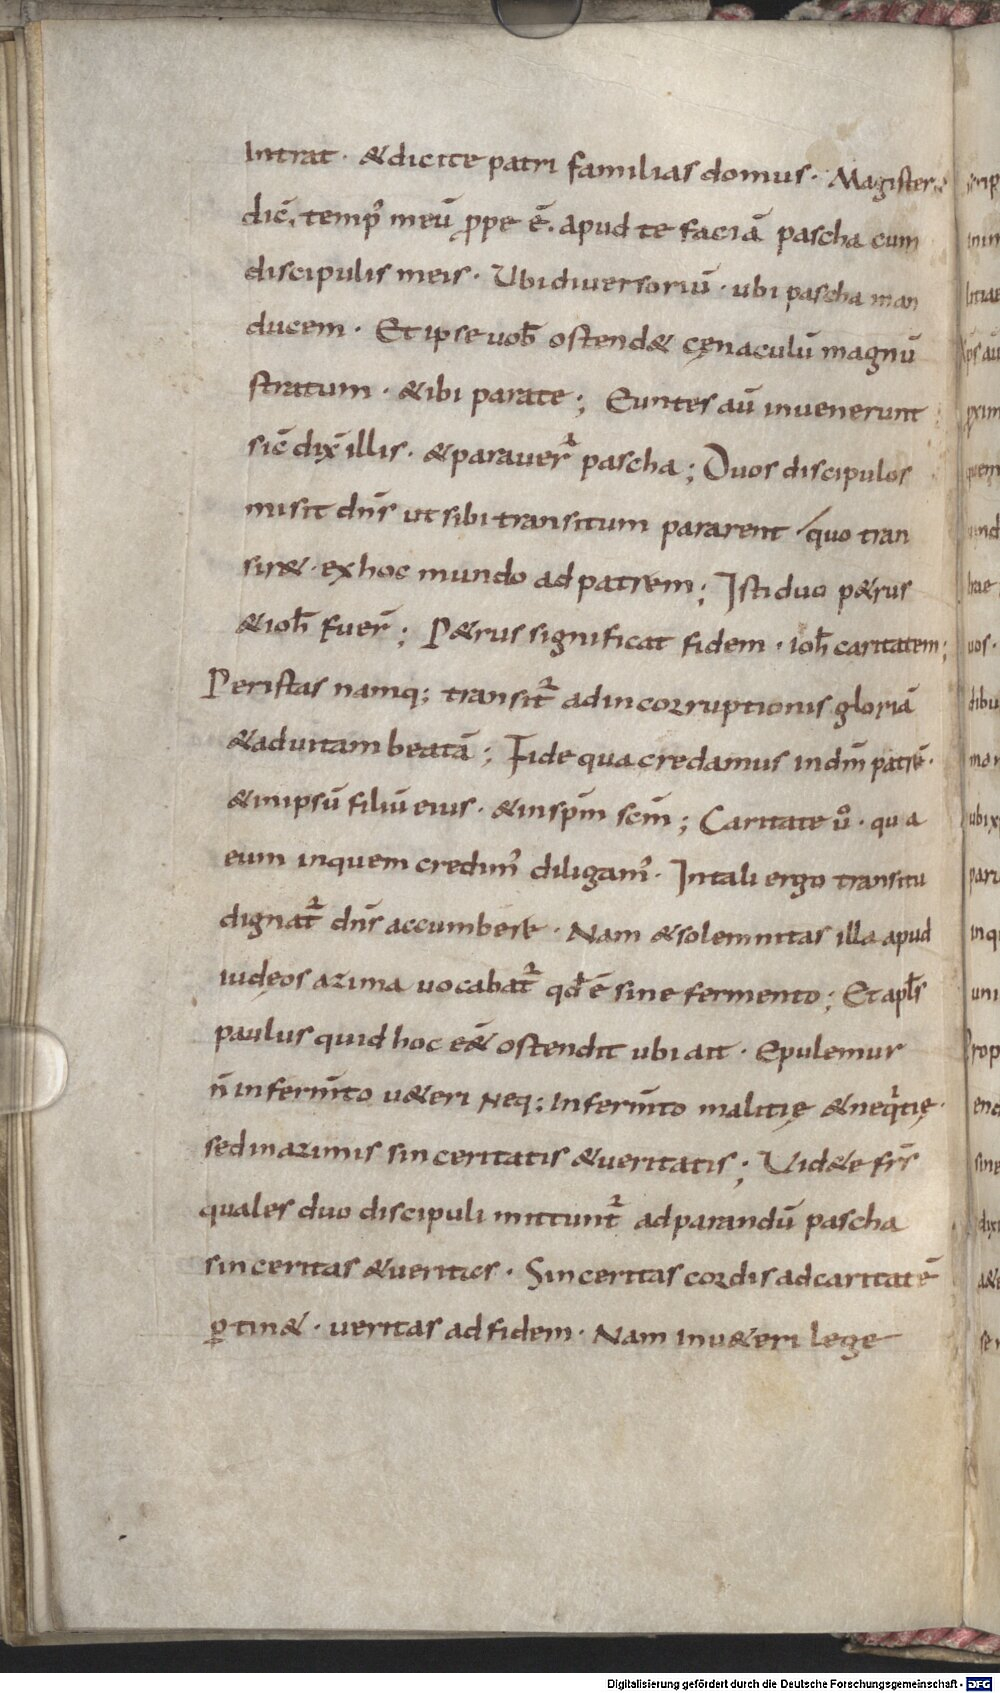 Intrat · & dicite patri familias domus · Magister
dic̄, temp᷒ meū ꝓpe ē, apud te faciā pascha cum
discipulis meis · Ubi diuersoriū · ubi pascha man
ducem · Et ipse uob̄ ostend& cęnaculū magnū
stratum · & ibi parate ; Euntes aū inuenerunt
sic̄ dix̄ illis · & parauer᷑ pascha ; Duos discipulos
misit dn̄s ut sibi transitum pararent quo tran
sir& · ex hoc mundo ad patrem ; Isti duo p&rus
& ioh̄ fuer̄ ; P&rus significat fidem · ioh̄ caritatem ;
Per istas namq; transit᷑ ad incorruptionis gloriā
& ad uitam beatā ; Fide qua credamus in dm̄ patrē ·
& in ipsū filiū eius · & in sp̄m scm̄ ; Caritate ů · qua
eum in quem credim᷒ diligam᷒ · In tali ergo transitu
dignat᷑ dn̄s accumbere · Nam & solemnitas illa apud
iudęos azima uocabat᷑ qđ ē sine fermento ; Et apl̄s
paulus quid hoc eē& ostendit ubi ait · Epulemur
n̄ in ferm̄to u&eri Neq; in ferm̄to malitię & neq̇tię ·
sed in azimis sinceritatis & ueritatis ; Uid&e fr̄s
quales duo discipuli mittunt᷑ ad parandū pascha
sinceritas & ueritas · Sinceritas cordis ad caritatē
ꝑtin& · ueritas ad fidem · Nam in u&eri lege
Digitalisierung gefördert durch die Deutsche Forschungsgemeinschaft - DFG